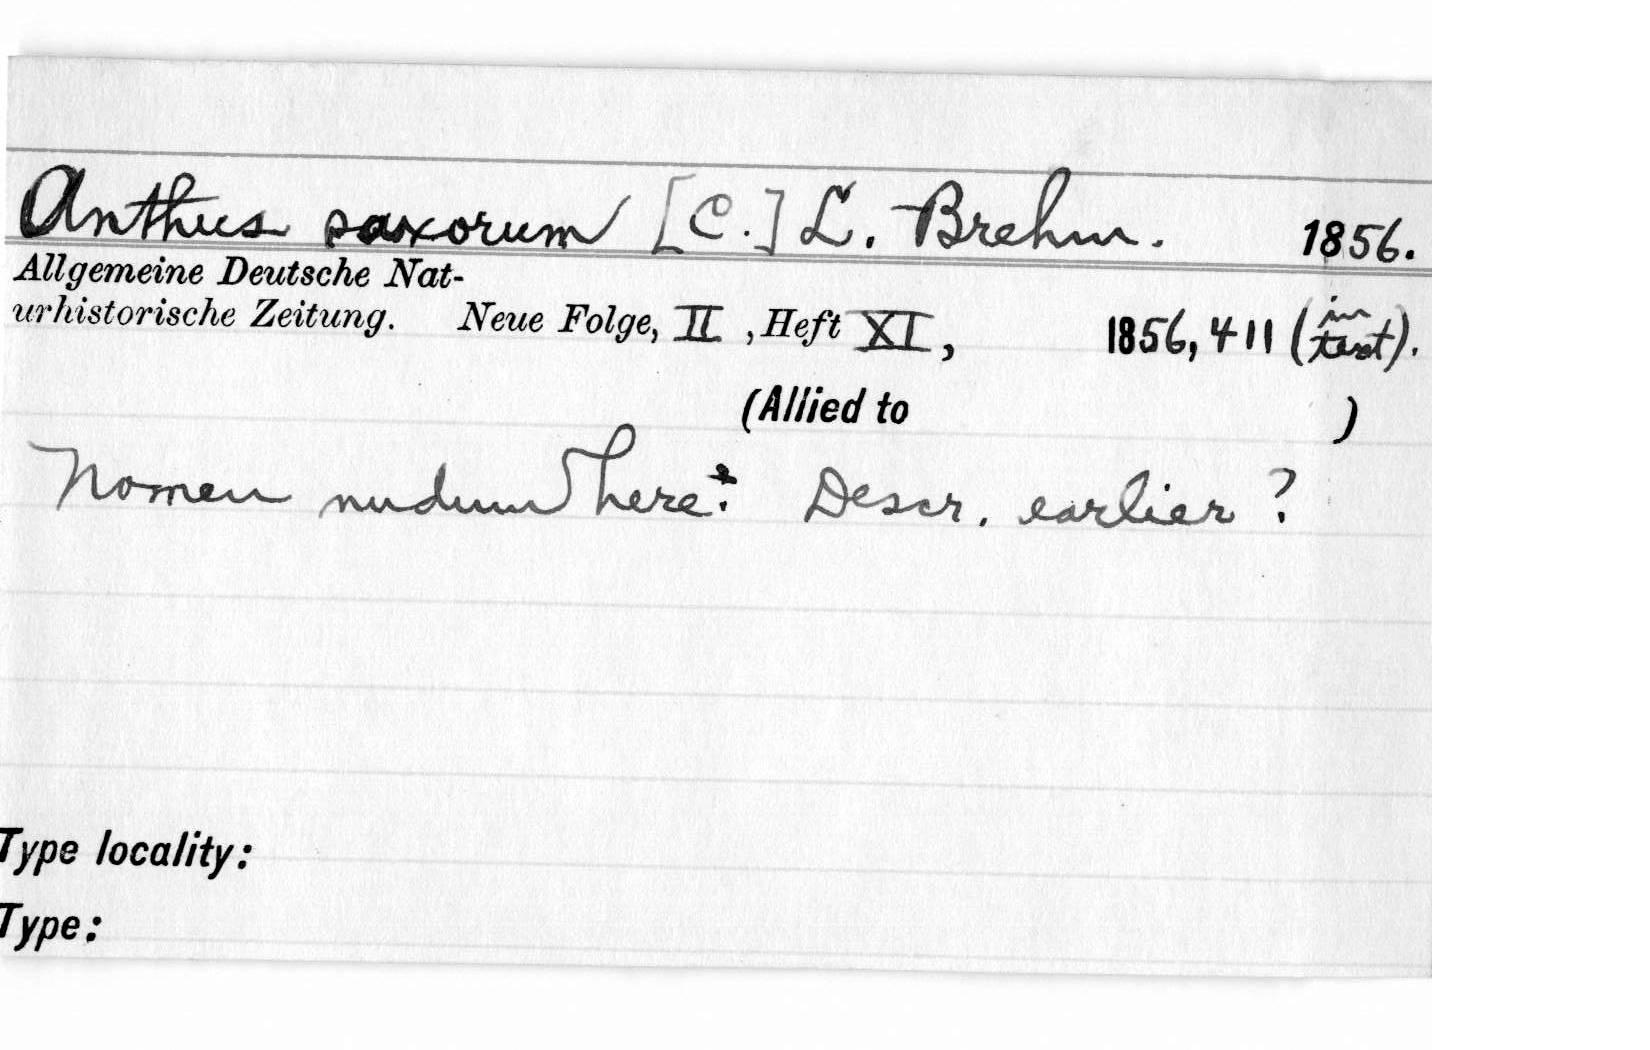 Anthus saxorum [C.] L. Brehm. 1856.
Allgemeine Deutsche Nat-
urhistorische Zeitung. Neue Folge, II , Heft XI, 1856, 411 (in text).
(Allied to )
Nomen nudum here? Descr. earlier ?
Type locality:
Type: